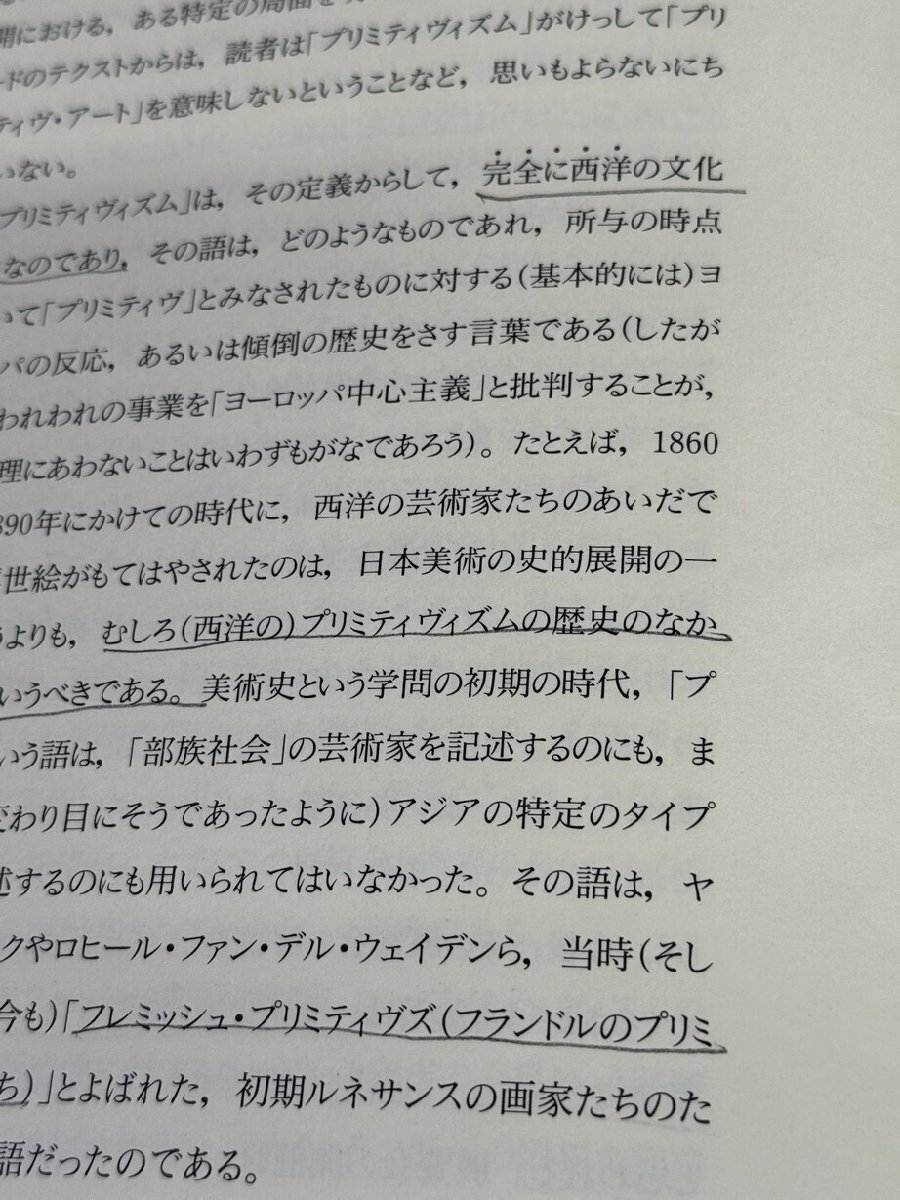 開における，ある特定の局面を
ードのテクストからは，読者は「プリミティヴィズム」がけっして「プリ
ティヴ・アート」を意味しないということなど，思いもよらないにち
いない。
プリミティヴィズム」は，その定義からして，完全に西洋の文化
なのであり，その語は，どのようなものであれ，所与の時点
いて「プリミティヴ」とみなされたものに対する（基本的には）ヨ
パの反応，あるいは傾倒の歴史をさす言葉である（したが
われわれの事業を「ヨーロッパ中心主義」と批判することが，
理にあわないことはいわずもがなであろう）。たとえば，1860
890年にかけての時代に，西洋の芸術家たちのあいだで
世絵がもてはやされたのは，日本美術の史的展開の一
うよりも，むしろ（西洋の）プリミティヴィズムの歴史のなか
いうべきである。美術史という学問の初期の時代，「プ
いう語は，「部族社会」の芸術家を記述するのにも，ま
変わり目にそうであったように）アジアの特定のタイプ
述するのにも用いられてはいなかった。その語は，ヤ
クやロヒール・ファン・デル・ウェイデンら，当時（そし
今も）「フレミッシュ・プリミティヴズ（フランドルのプリミ
ち）」とよばれた，初期ルネサンスの画家たちのた
語だったのである。